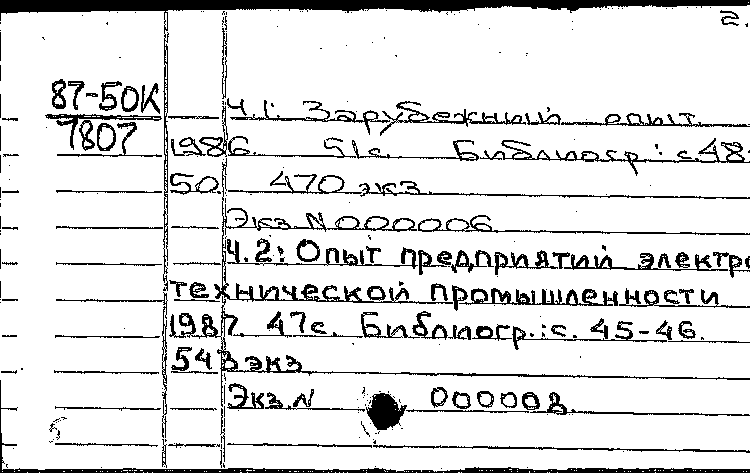 2.
87-50К
7807
Ч.1: Зарубежный опыт.
1986. 51с. Библиогр.: с.48-
50 470 экз.
Экз N 000006
Ч.2: Опыт предприятий электро
технической промышленности
1987. 47с. Библиогр.: с. 45-46.
543 экз.
Экз.N 000008.
5